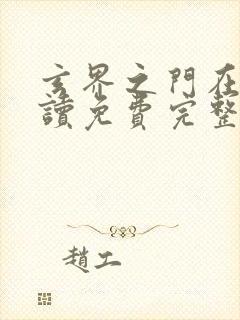 玄界之門在
讀免費完整
趙工